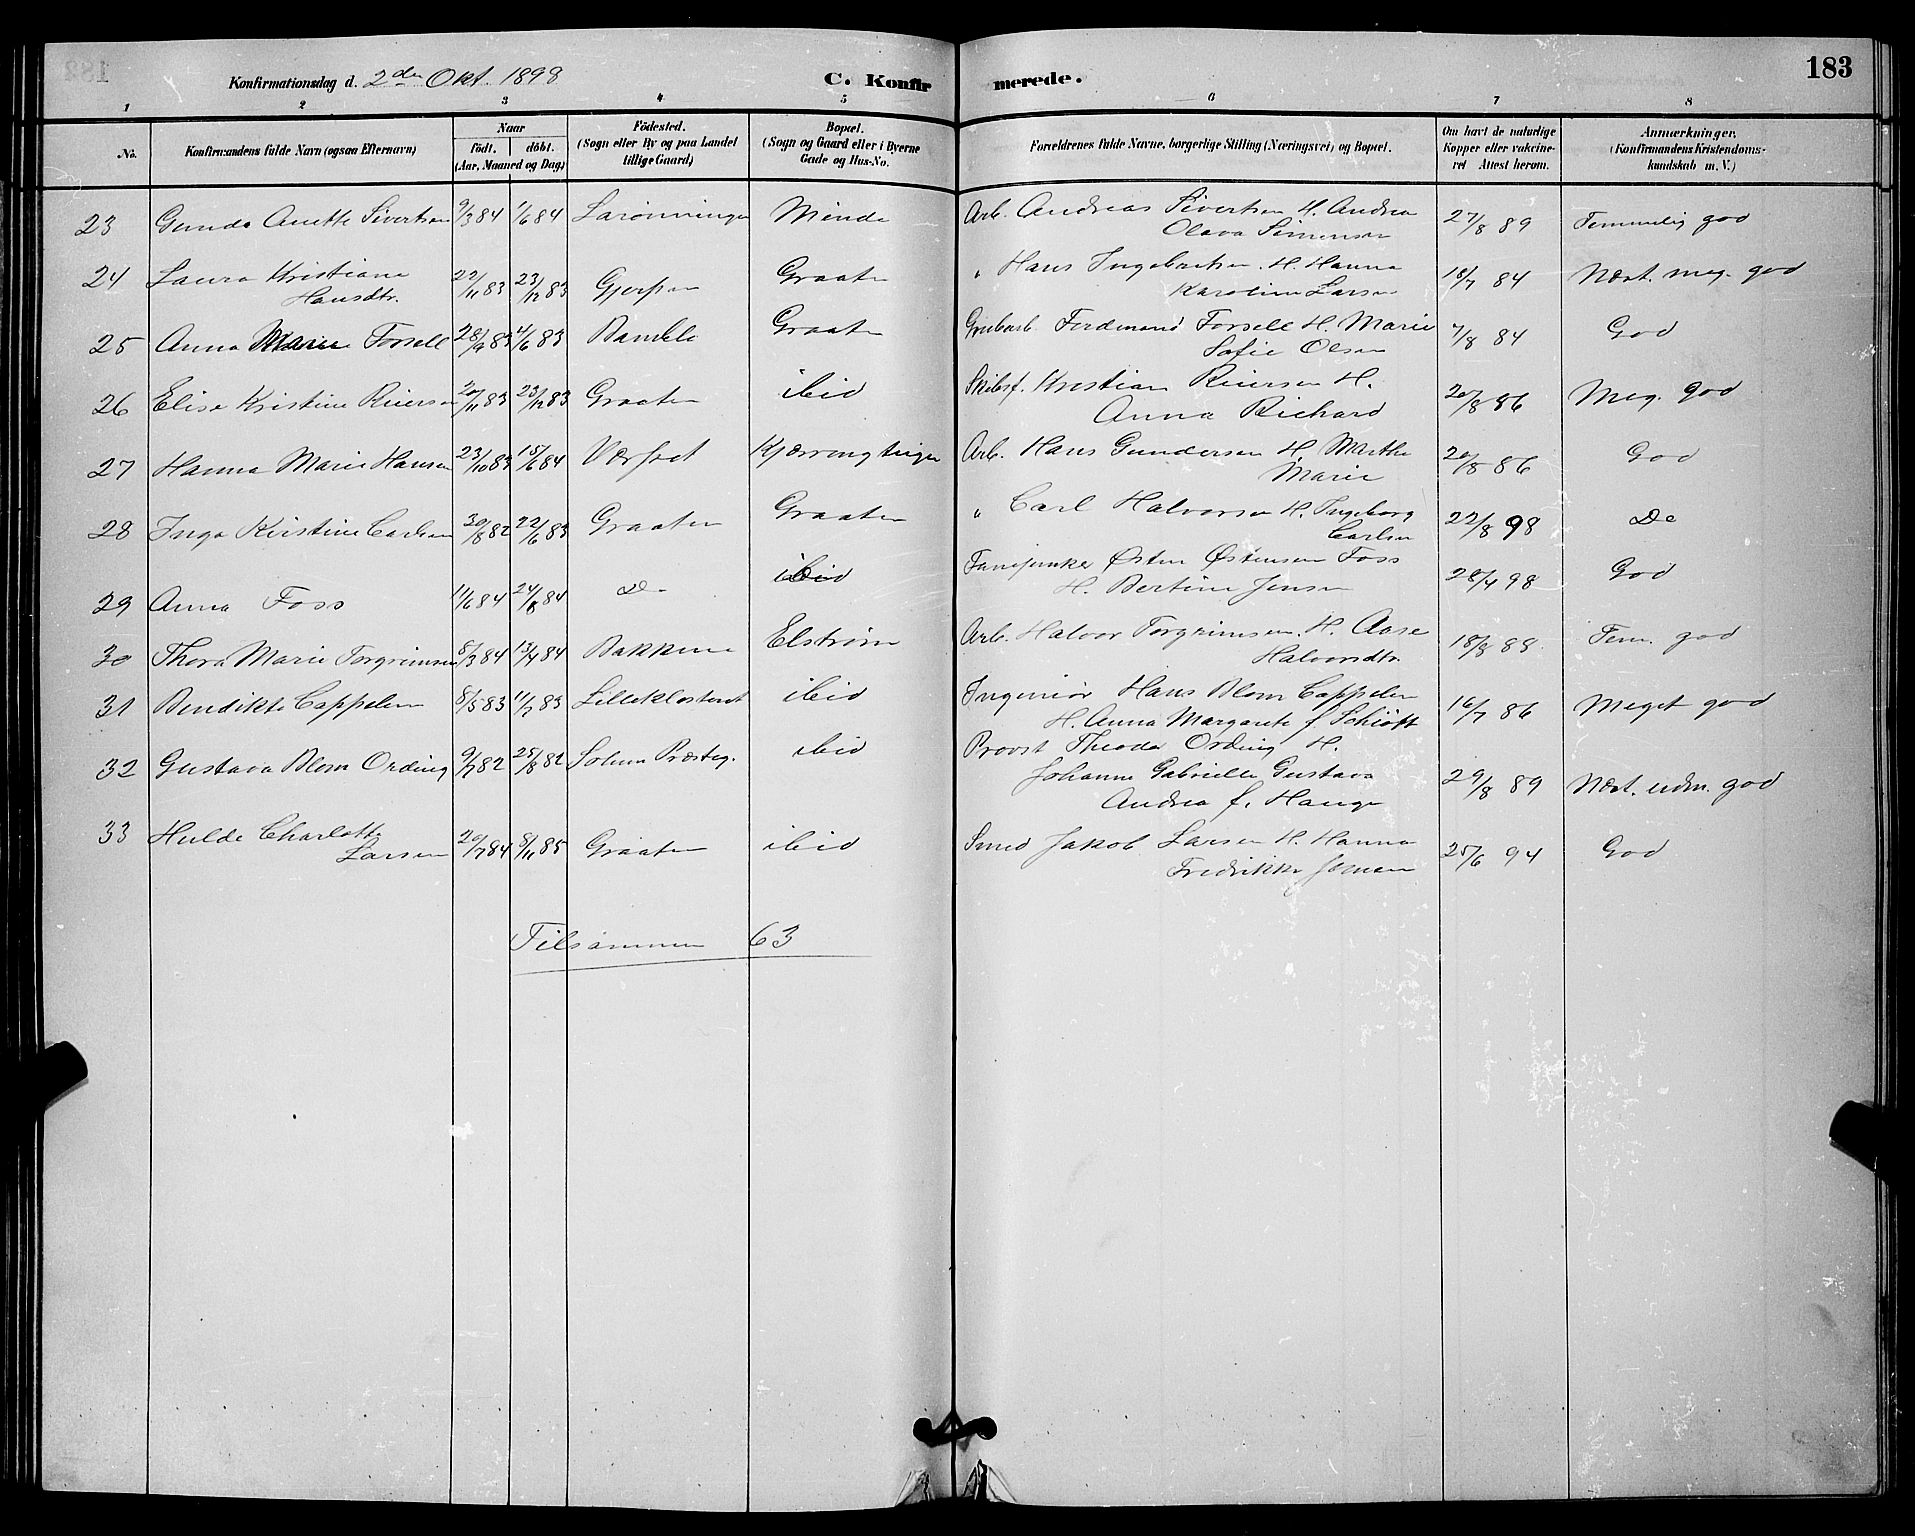 Konfirmationsdag d. 2den Okt. 1898 C. Konfirmerede. 183
1 2 3 4 5 6 7 8
No. Konfirmandens fulde Navn (ogsaa Efternavn) Naar födt. döbt. (Aar, Maaned og Dag) Födested. (Sogn eller By og paa Landet tillige Gaard) Bopæl. (Sogn og Gaard eller i Byerne Gade og Hus-No. Forældrenes fulde Navne, borgerlige Stilling (Næringsvei) og Bopæl. Om havt de naturlige Kopper eller vakcineret Attest herom. Anmærkninger. (Konfirmandens Kristendomskundskab m. V.)
23 Gunda Anette Sivertsen 9/3 84 1/6 84 Larönningen Minde Arb. Andreas Sivertsen H. Andrea 27/8 89 Temmelig god
Olava Simensen
24 Laura Kristiane 22/11 83 23/12 83 Gjerpen Graaten " Hans Ingebretsen H. Hanna 18/7 84 Næst. meg. god
Hansdtr. Karoline Larsen
25 Anna Marie Forsell 28/9 83 4/6 83 Bamble Graaten Grubearb. Ferdinand Forsell H. Marie 7/8 84 God
Sofie Olsen
26 Elise Kristine Riiersen 20/11 83 23/12 83 Graaten ibid Skibsf. Kristian Riiersen H. 20/8 86 Meg. god
Anna Richard
27 Hanna Marie Hansen 23/10 83 15/6 84 Værfset Kjærringtingen Arb. Hans Gundersen H. Marthe 20/8 86 God
Marie
28 Inga Kristine Carlsen 30/8 82 22/6 83 Graaten Graaten " Carl Halvorsen H. Ingeborg 22/8 98 Do
Carlsen
29 Anna Foss 11/6 84 24/8 84 Do ibid Fanejunker Østen Østensen Foss 28/4 98 God
H. Bertine Jensen
30 Thora Marie Torgrimsen 8/3 84 13/4 84 Bakken Elstrøm Arb. Halvor Torgrimsen H. Aase 18/8 88 Tem. god
Halvorsdtr.
31 Bendikte Cappelen 8/5 83 11/7 83 Lilleklosteret ibid Ingeniör Hans Blom Cappelen 16/7 86 Meget god
H. Anna Margarete f. Schiøtt
32 Gustava Blom Ording 9/7 82 25/8 82 Solum Præsteg. ibid Provst Theodor Ording H. 29/8 89 Næst. udm. god
Johanne Gabrielle Gustava
Andrea f. Hauge
33 Hulda Charlotte 20/7 84 8/11 85 Graaten ibid Smed Jakob Larsen H. Hanna 25/6 94 God
Larsen Fredrikke
Tilsammen 63